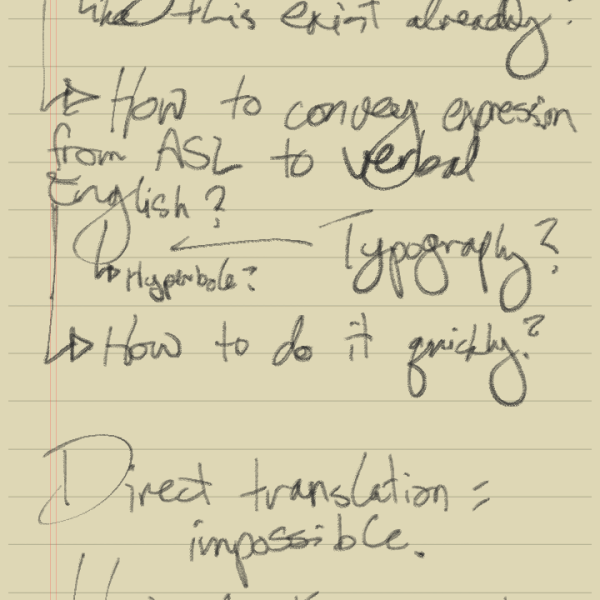 like this exist already?
How to convey expression
from ASL to verbal
English?
Typography?
Hyperbole?
How to do it quickly?
Direct translation =
impossible.